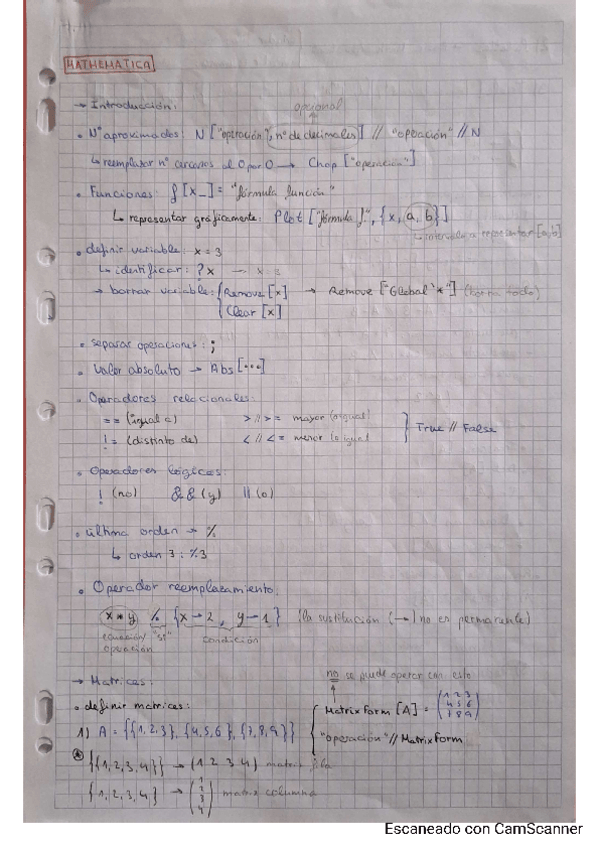 MATHEMATICA
→ Introducción:
opcional
• Nº aproximados: N ["operación", nº de decimales] // "operación" // N
↳ reemplazar nº cercanos al 0 por 0 → Chop ["operación"]
• Funciones: f [x_] = "fórmula función"
↳ representar gráficamente: Plot ["fórmula f", {x, a, b}]
↳ intervalo a representar [a, b]
• definir variable: x = 3
↳ identificar: ? x — x = 3
→ borrar variable: { Remove [x] → Remove ["Global`*"] (borra todo)
Clear [x]
• separar operaciones: ;
• Valor absoluto → Abs [...]
• Operadores relacionales:
== (igual a) > // >= mayor (o igual)
!= (distinto de) < // <= menor (o igual } True // False
• Operadores lógicos:
! (no) && (y) || (o)
• última orden → %
↳ orden 3: %3
• Operador reemplazamiento:
x * y /. {x → 2, y → 1} (la sustitución (→) no es permanente)
ecuación/ "si" condición
operación
→ Matrices: no se puede operar con esto
• definir matrices: MatrixForm [A] = (1 2 3
4 5 6
7 8 9)
1) A = {{1, 2, 3}, {4, 5, 6}, {7, 8, 9}} "operación" // MatrixForm
{{1, 2, 3, 4}} → (1 2 3 4) matriz fila
{1, 2, 3, 4} → (1
2
3
4) matriz columna
Escaneado con CamScanner